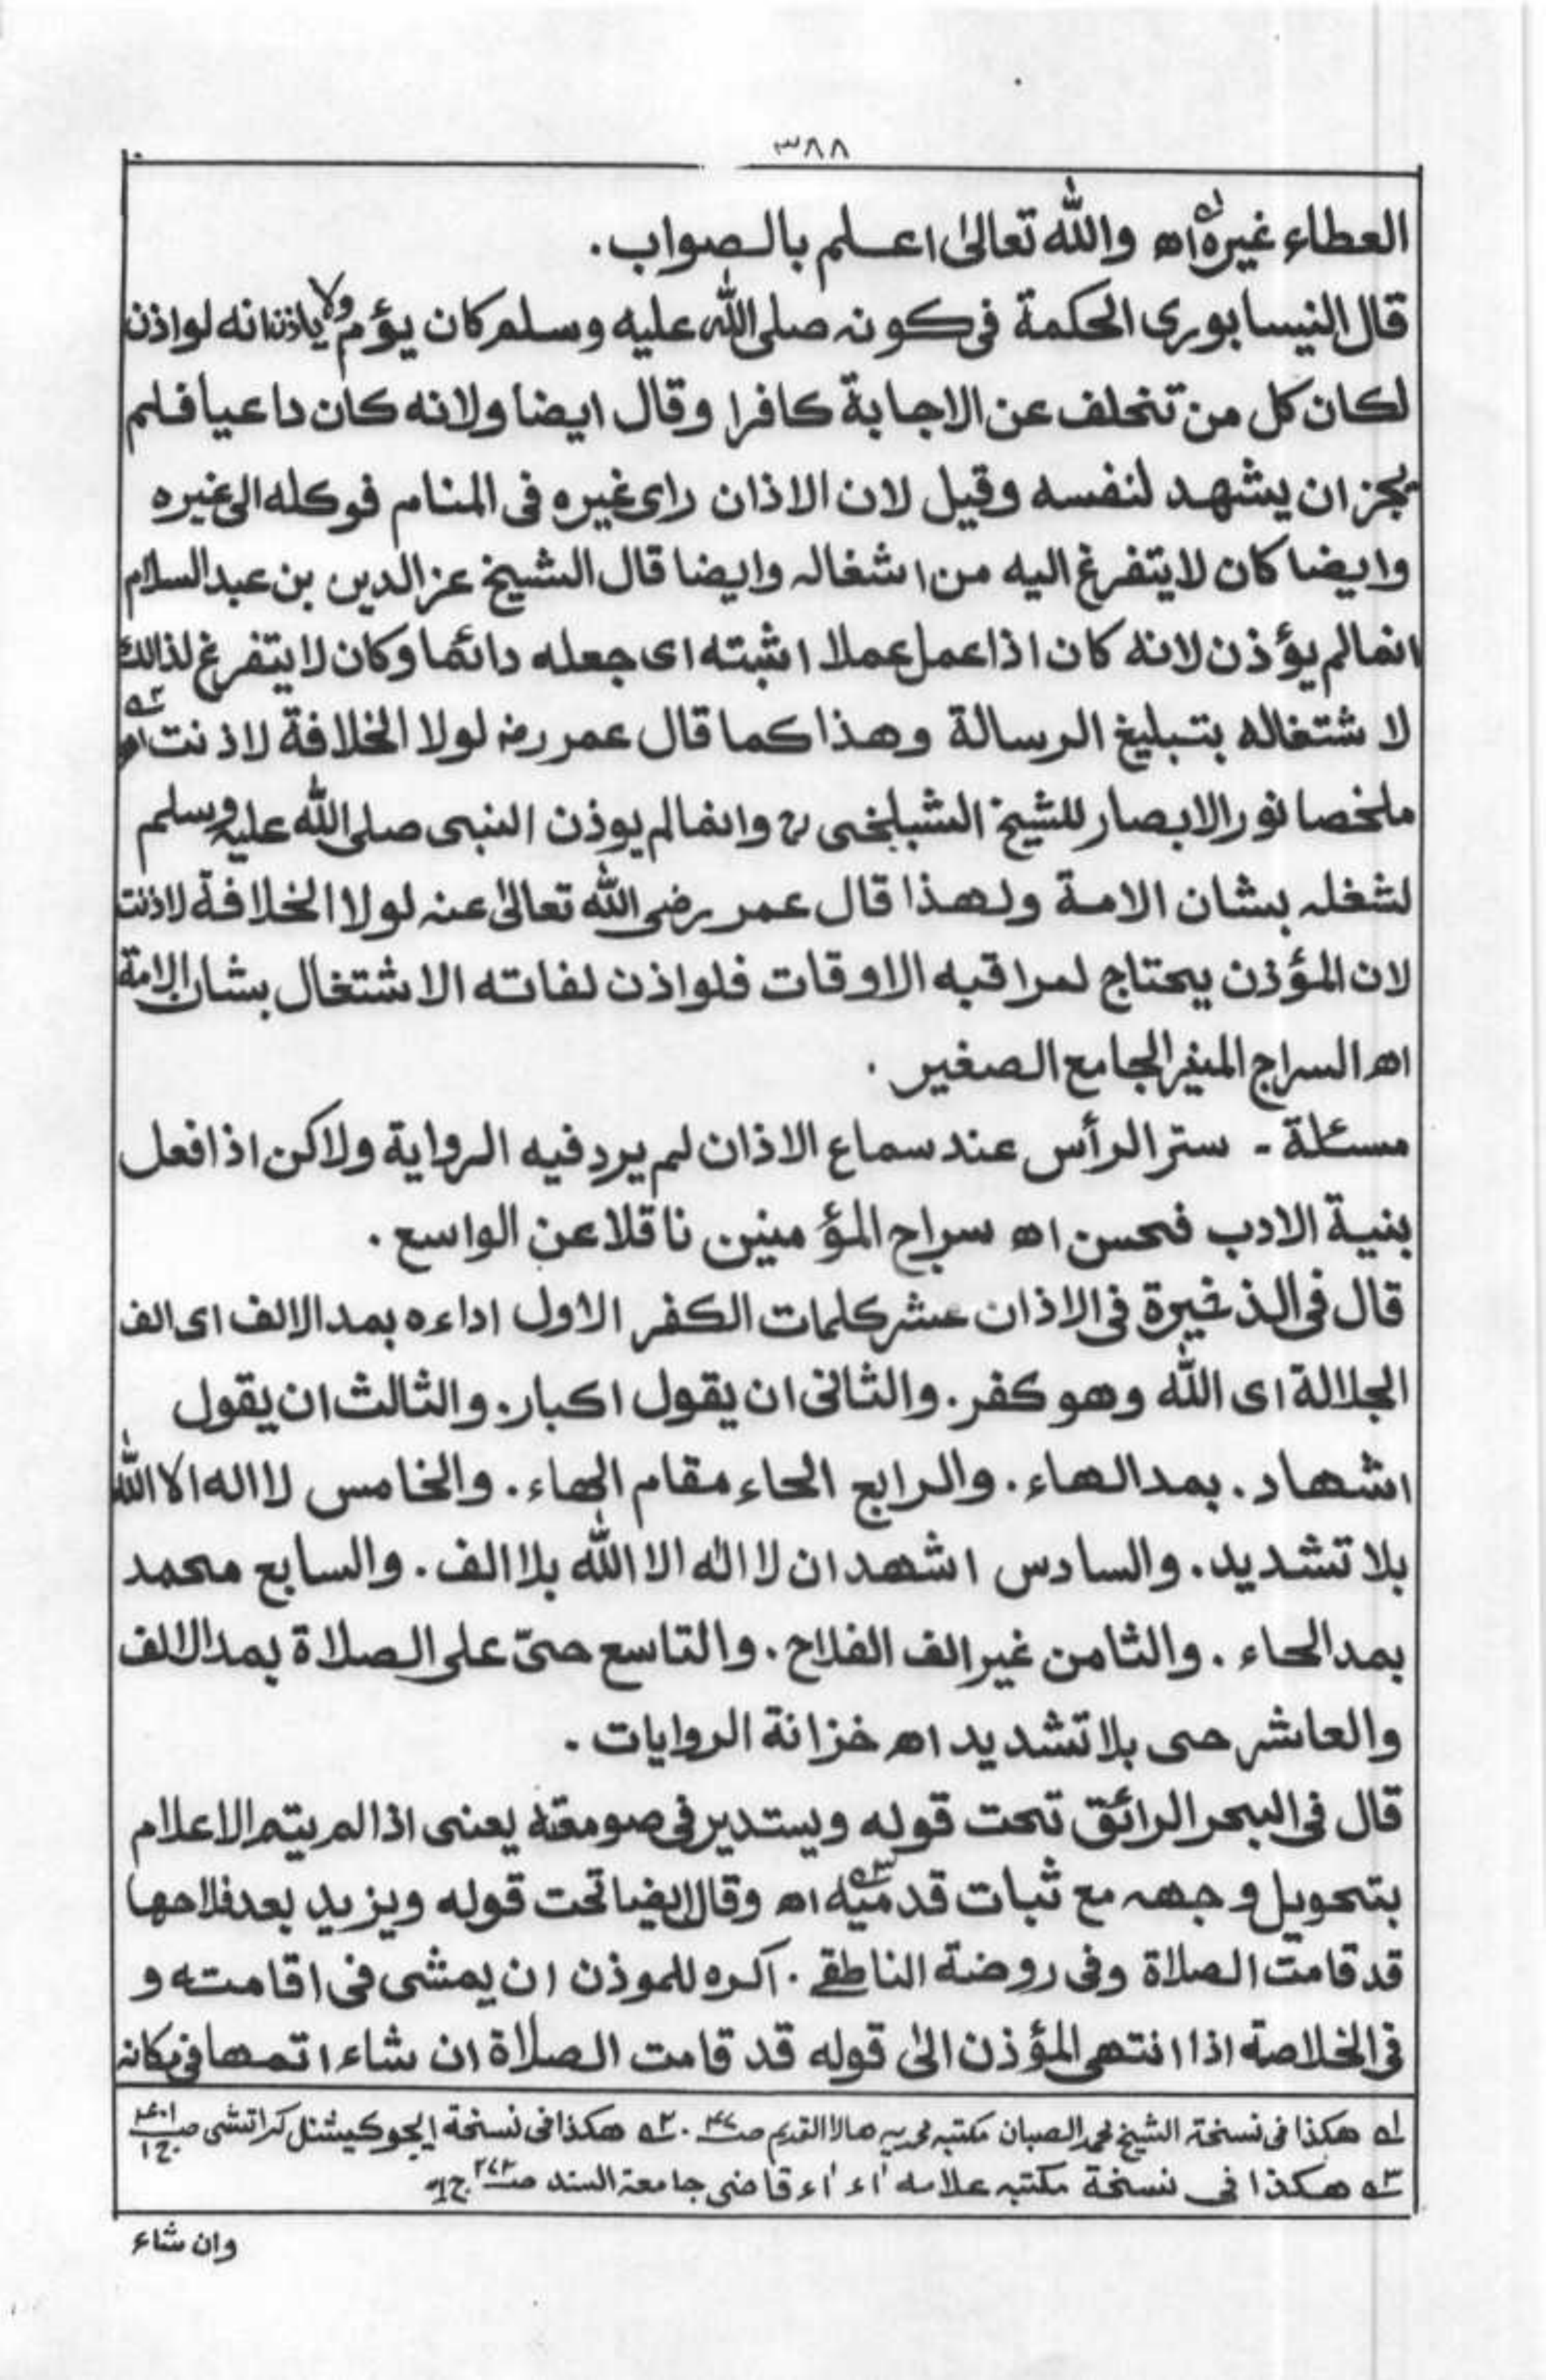 ٣٨٨
العطاء غيره اھ والله تعالىٰ اعلم بالصواب.
قال النيسابورى الحكمة فى كونه صلى الله عليه وسلم كان يؤم ولا ياذن انه لو اذن
لكان كل من تخلف عن الاجابة كافرا وقال ايضا ولانه كان داعيا فلم
يجز ان يشهد لنفسه وقيل لان الاذان راى غيره فى المنام فوكله الى غيره
وايضا كان لا يتفرغ اليه من اشغاله وايضا قال الشيخ عز الدين بن عبد السلام
انما لم يؤذن لانه كان اذا عمل عملا اثبته اى جعله دائما وكان لا يتفرغ لذالك
لا شتغاله بتبليغ الرسالة وهذا كما قال عمر رضه لولا الخلافة لاذنت اھ
ملخصا نور الابصار للشيخ الشبلخى رح وانما لم يوذن النبى صلى الله عليه وسلم
لشغله بشان الامة ولهذا قال عمر رضى الله تعالىٰ عنه لولا الخلافة لاذنت
لان المؤذن يحتاج لمراقبه الاوقات فلو اذن لفاته الاشتغال بشان الامة
اھ السراج المنير الجامع الصغير .
مسئلة - ستر الرأس عند سماع الاذان لم يرد فيه الرواية ولاكن اذا فعل
بنية الادب فحسن اھ سراج المؤمنين ناقلا عن الواسع .
قال فى الذخيرة فى الاذان عشر كلمات الكفر الاول اداءه بمد الالف اى الف
الجلالة اى الله وهو كفر. والثانى ان يقول اكبار. والثالث ان يقول
اشهاد . بمد الهاء . والرابع الحاء مقام الهاء . والخامس لا اله الا الله
بلا تشديد . والسادس اشهد ان لا اله الا الله بلا الف . والسابع محمد
بمد الحاء . والثامن غير الف الفلاح . والتاسع حىّ على الصلاة بمد الالف
والعاشر حى بلا تشديد اھ خزانة الروايات .
قال فى البحر الرائق تحت قوله ويستدير فى صومعته يعنى اذا لم يتم الاعلام
بتحويل وجهه مع ثبات قدميه اھ وقال ايضا تحت قوله ويزيد بعد فلاحها
قد قامت الصلاة وفى روضة الناطقے . اكره للموذن ان يمشى فى اقامته و
فى الخلاصة اذا انتهى المؤذن الىٰ قوله قد قامت الصلاة ان شاء اتمها فى مكانه
له هكذا فى نسخة الشيخ محمد الصبان مكتبه محمديه هالا القديم صـ ٤٧ . ٢ه هكذا فى نسخة ايجوكيشنل كراتشى صـ ج١
٣ه هكذا فى نسخة مكتبه علامه اء اء قاضى جامعة السند صـ ج١
وان شاء